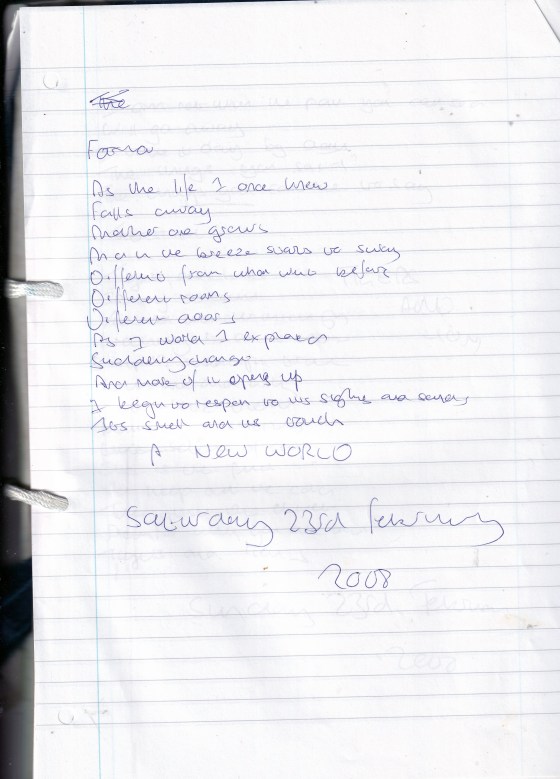 The
As the life I once knew
Falls away
Another one grows
And in the breeze starts to sway
Different from what was before
Different rooms
Different doors
As I world I explored
Suddenly change
And more of it opens up
I begin to respon to its sights and sounds
Its smell and its touch
A NEW WORLD
Saturday 23rd February
2008